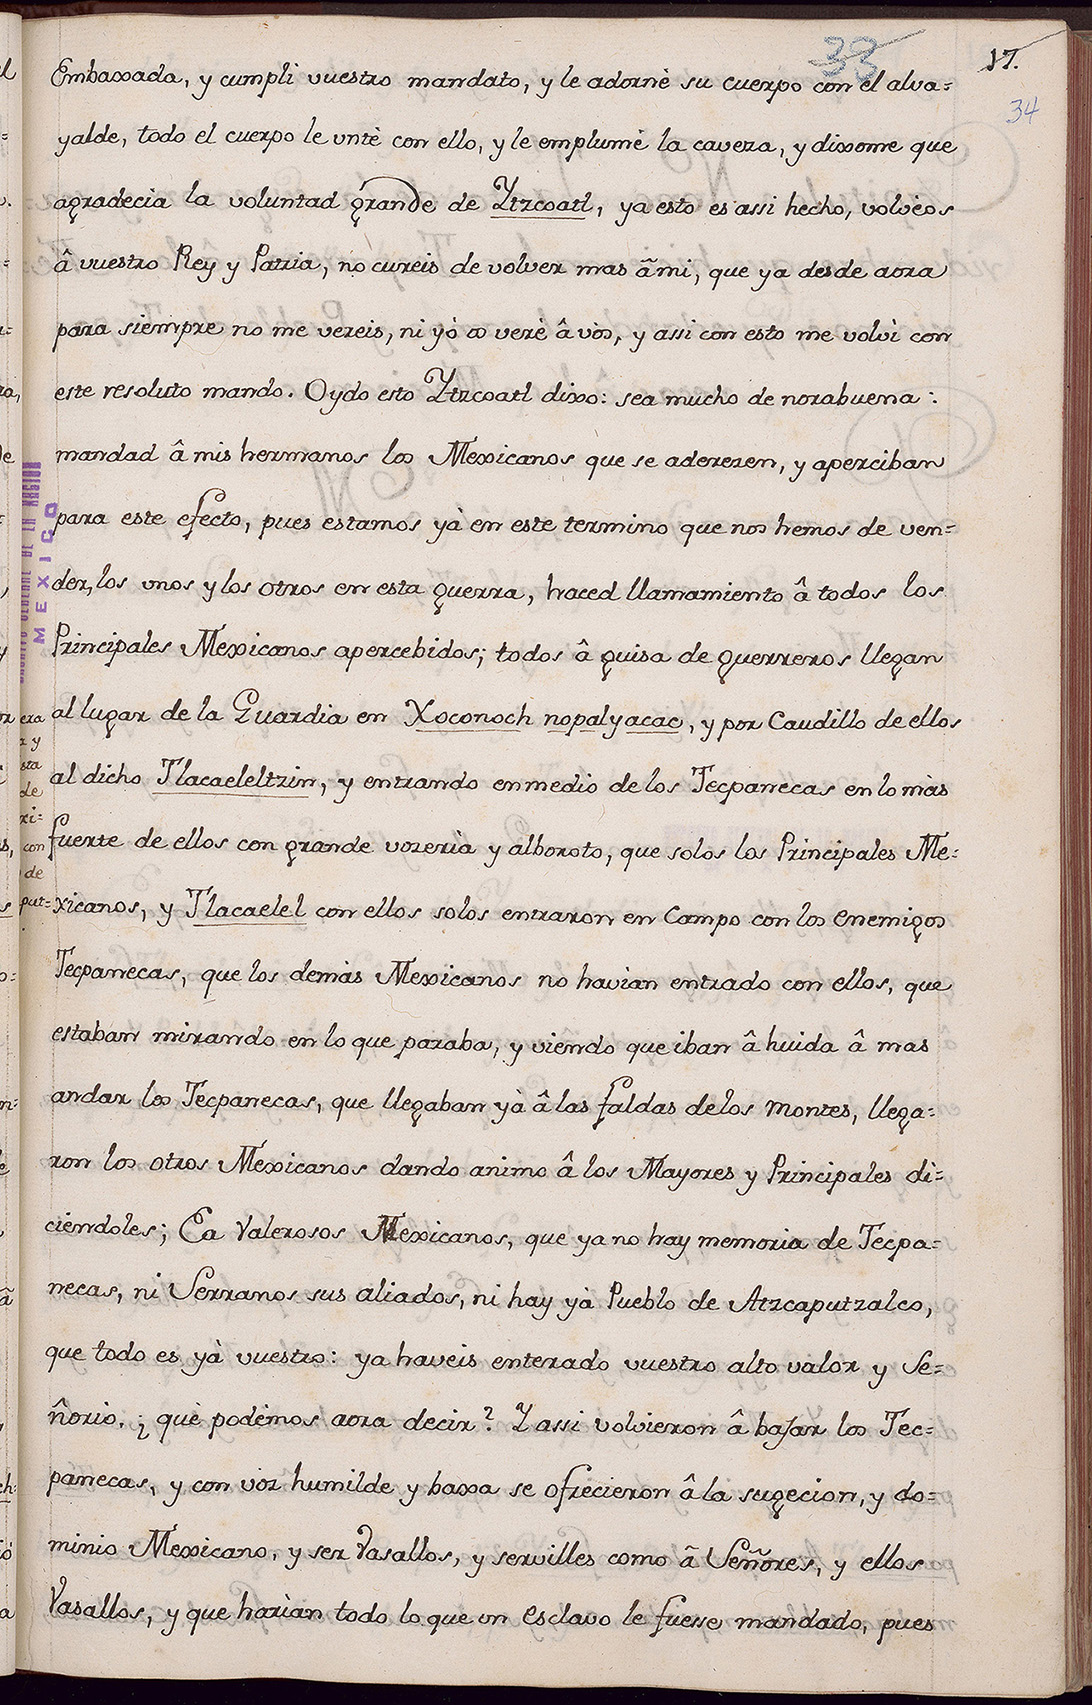 33
17.
34
Embaxada, y cumpli vuestro mandato, y le adornè su cuerpo con el alva=
yalde, todo el cuerpo le vntè con ello, y le emplumè la caveza, y dixome que
agradecia la voluntad grande de Ytzcoatl, ya esto es assi hecho, volvèos
â vuestro Rey y Patria, no cureis de volver mas â mi, que ya desde aora
para siempre no me vereis, ni yò os verè â vòs, y assi con esto me volvì con
este resoluto mando. Oydo esto Ytzcoatl dixo: sea mucho de norabuena:
mandad â mis hermanos los Mexicanos que se aderezen, y aperciban
para este efecto, pues estamos yà en este termino que nos hemos de ven=
der, los vnos y los otros en esta guerra, haced llamamiento â todos los
Principales Mexicanos apercebidos; todos â guisa de guerreros llegan
al lugar de la Guardia en Xoconoch nopalyacac, y por Caudillo de ellos
al dicho Tlacaeleltzin, y entrando enmedio de los Tecpanecas en lo màs
fuerte de ellos con grande vozerìa y alboroto, que solos los Principales Me=
xicanos, y Tlacaelel con ellos solos entraron en Campo con los enemigos
Tecpanecas, que los demàs Mexicanos no havian entrado con ellos, que
estaban mirando en lo que paraba, y viendo que iban â huida â mas
andar los Tecpanecas, que llegaban yà â las faldas de los montes, llega=
ron los otros Mexicanos dando animo â los Mayores y Principales di=
ciendoles; Ea Valerosos Mexicanos, que ya no hay memoria de Tecpa=
necas, ni Serranos sus aliados, ni hay yà Pueblo de Atzcaputzalco,
que todo es yà vuestro: ya haveis enterado vuestro alto valor y Se=
ñorio, ¿ què podèmos aora decir? Y assi volvieron â bajar los Tec=
panecas, y con voz humilde y baxa se ofrecieron â la sugecion, y do=
minio Mexicano, y ser Vasallos, y servilles como â Señores, y ellos
Vasallos, y que harìan todo lo que un esclavo le fuesse mandado, pues
MEXICO
era
y
sta
de
xi=
con
de
put=